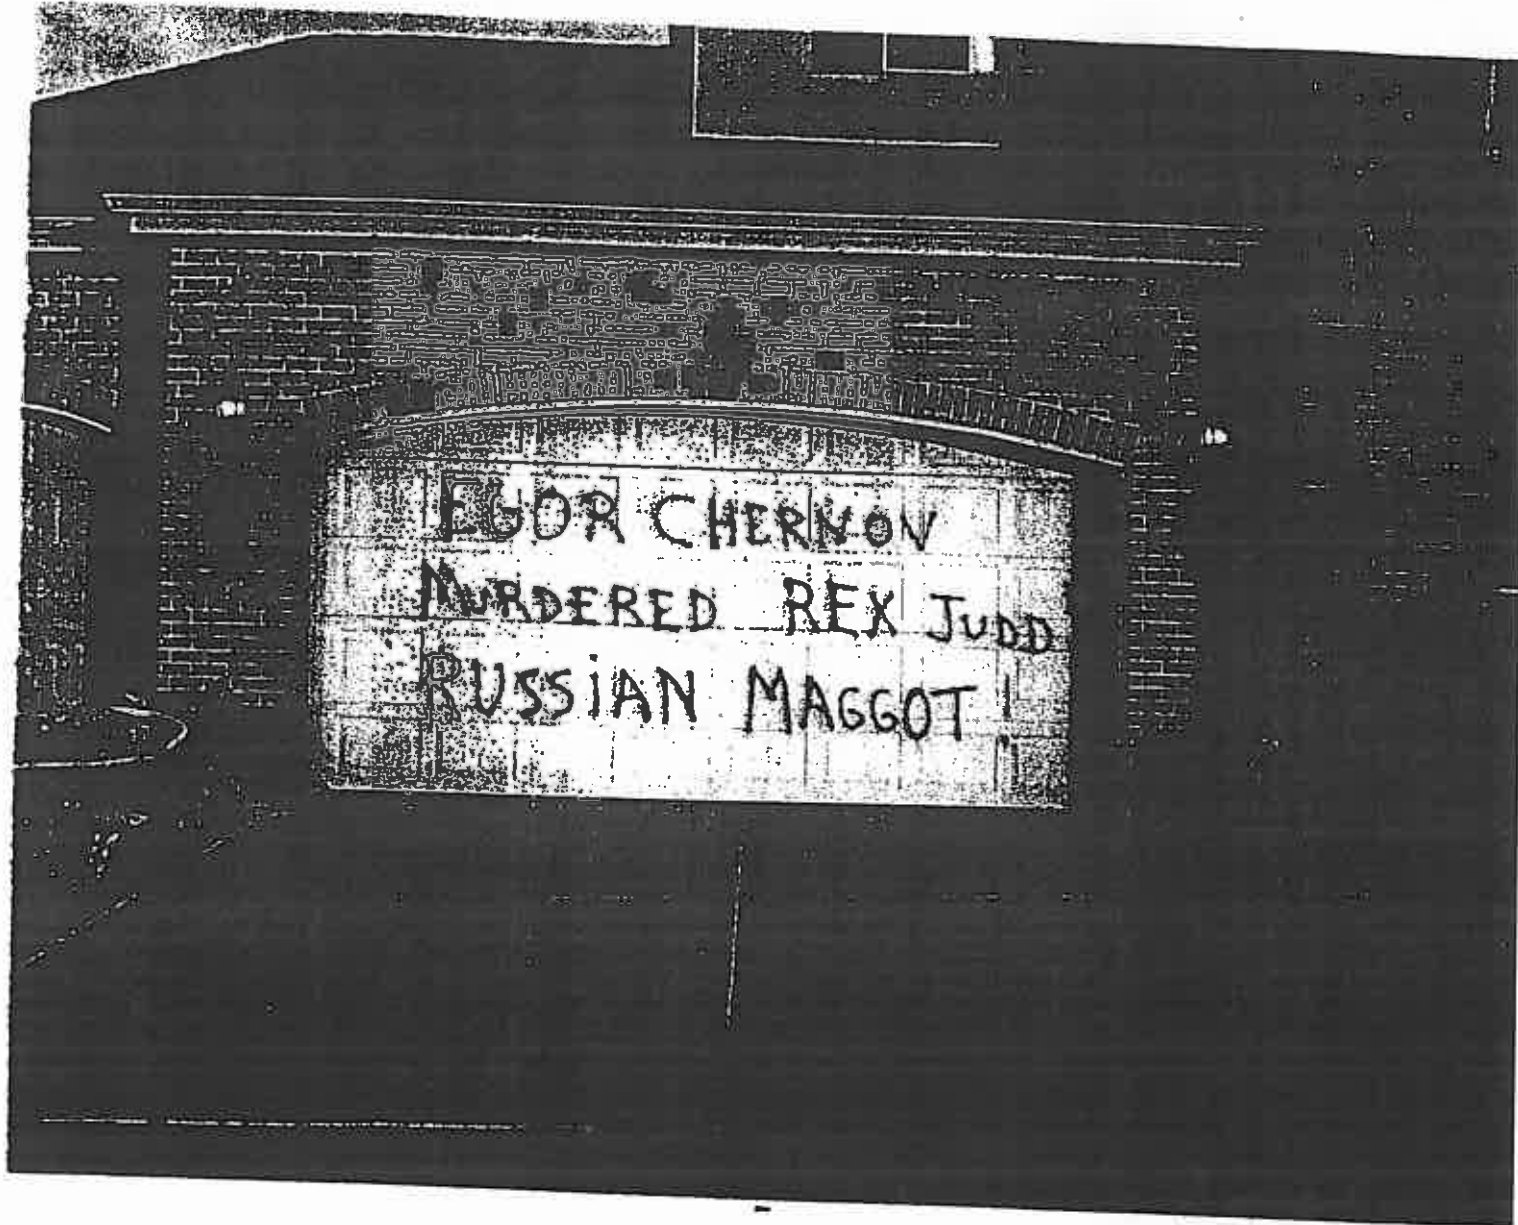 EGOR CHERNOV
MURDERED REX JUDD
RUSSiAN MAGGOT!